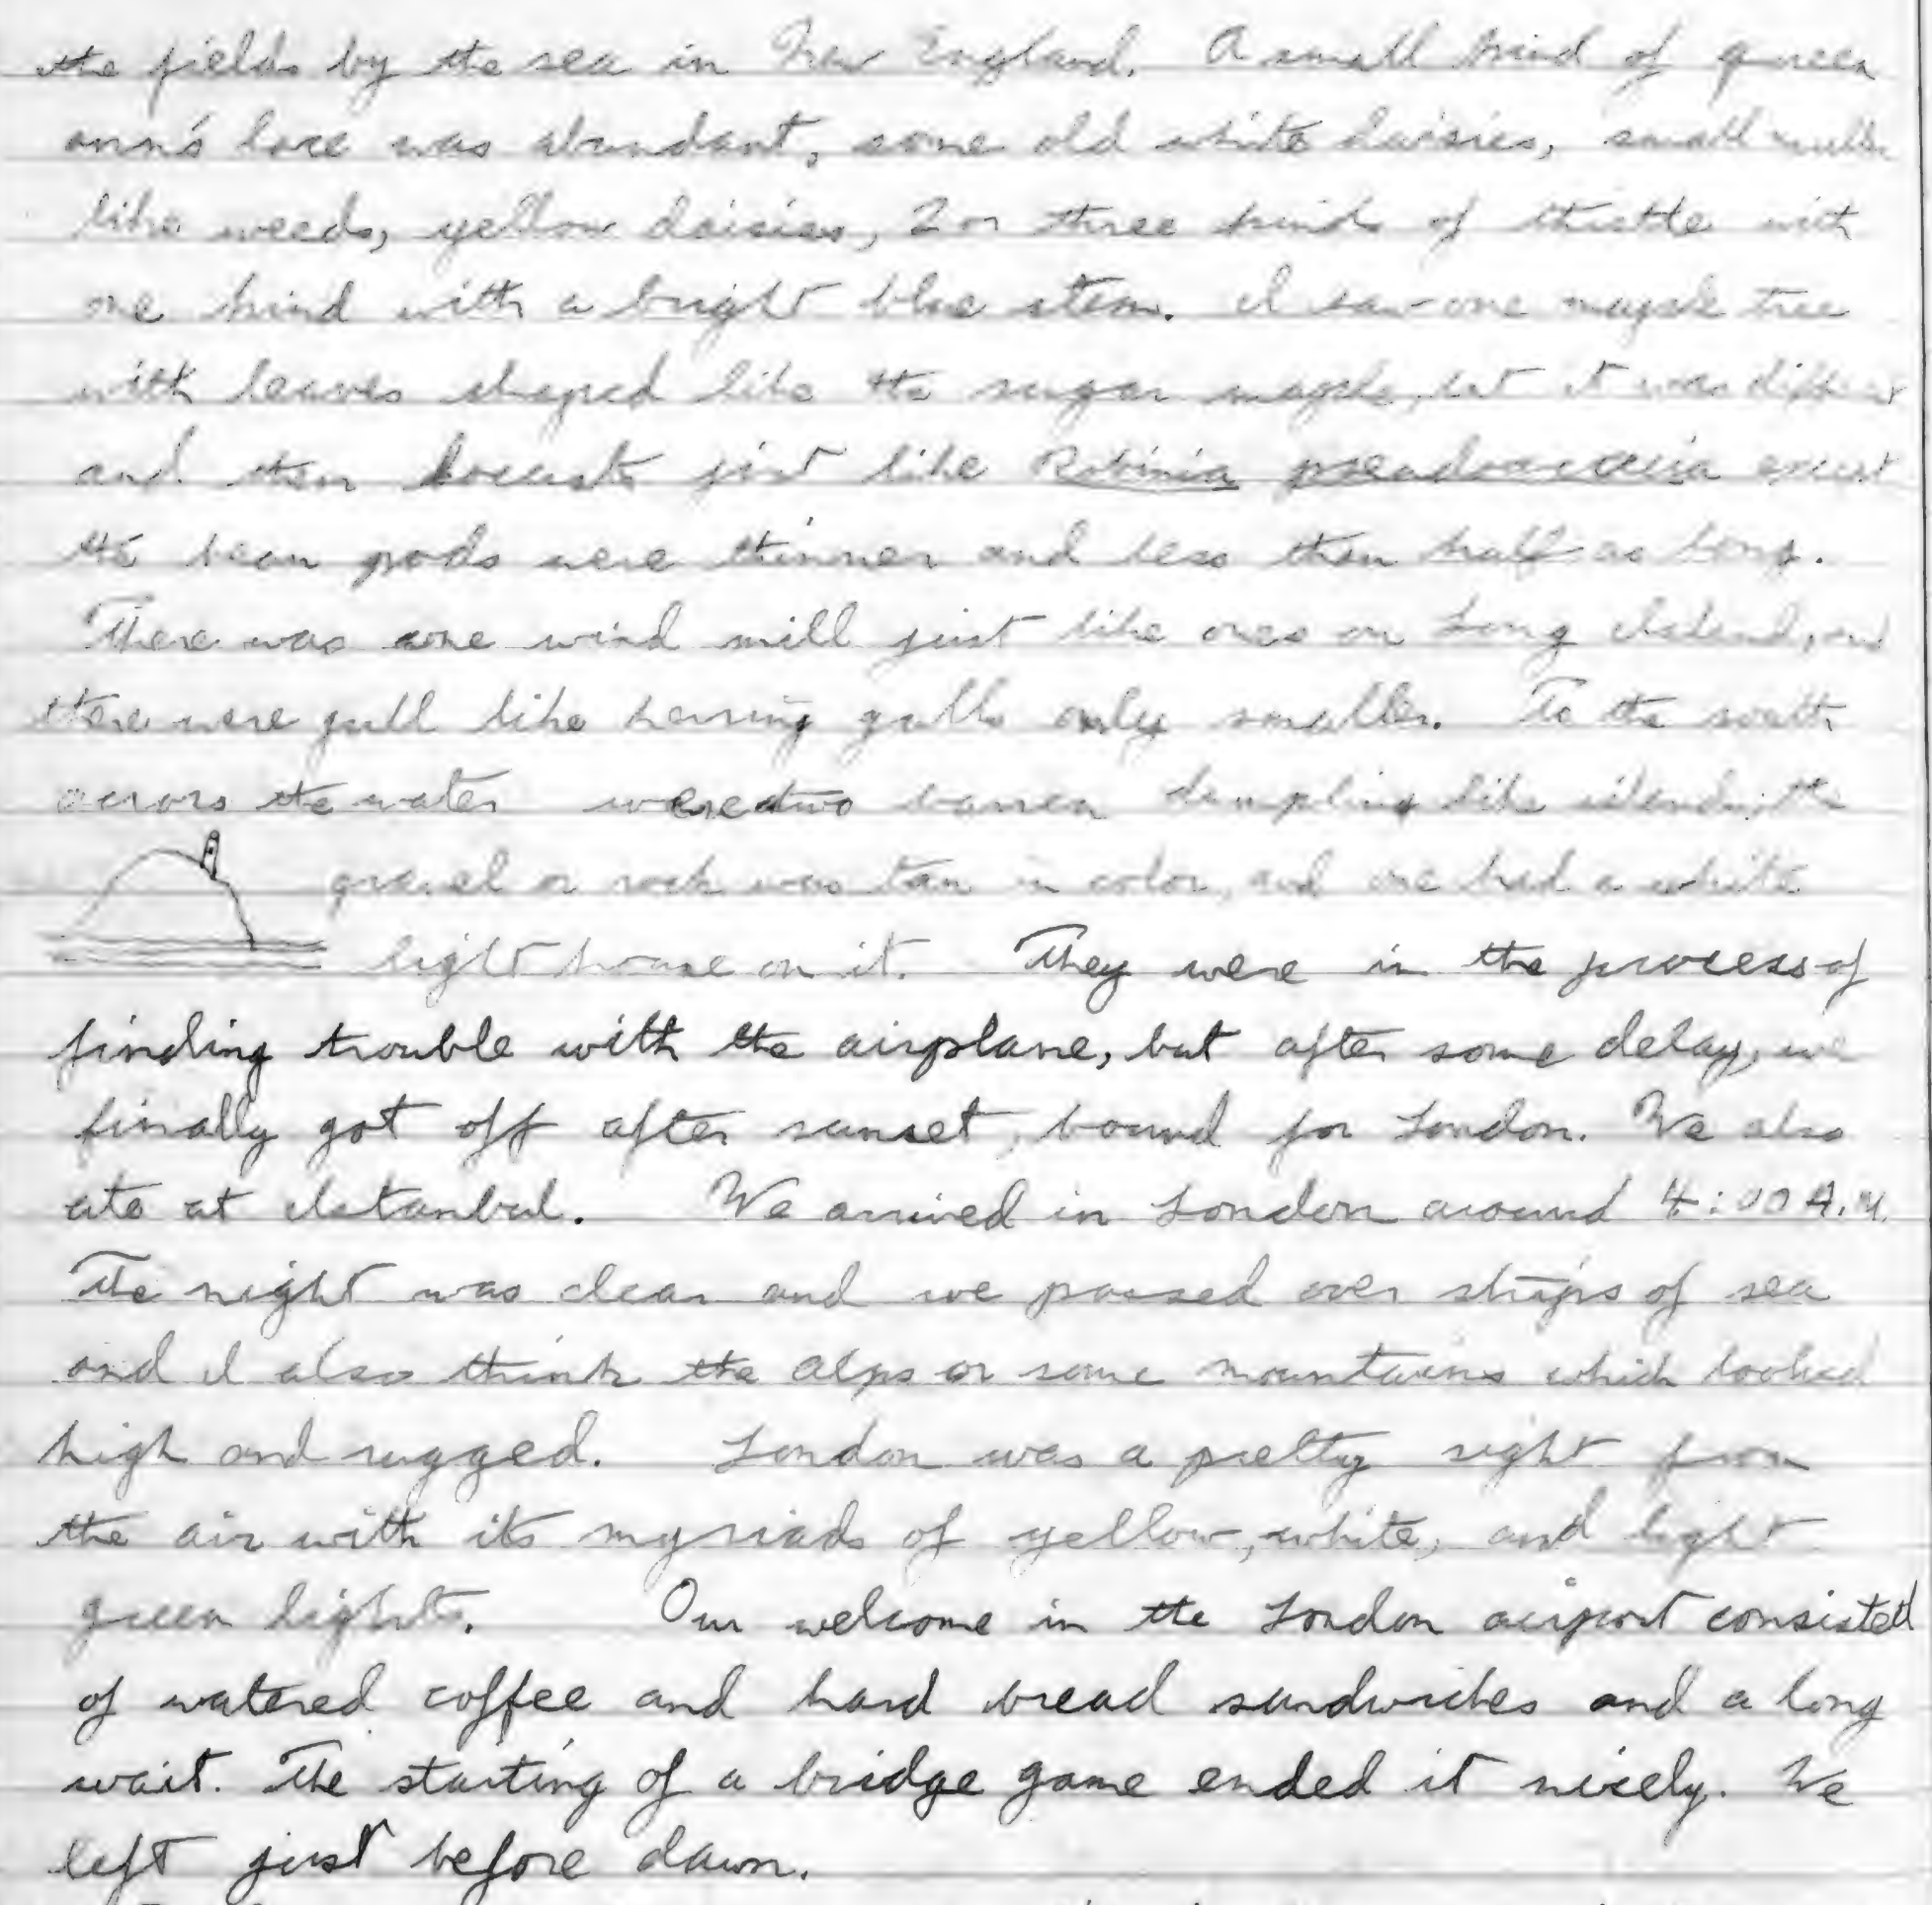 the fields by the sea in New England. A small kind of queen
ann's lace was abundant, some old white daisies, small
like weeds, yellow daisies, 2 or three kinds of thistle with
one kind with a bright blue stem. I saw one maple tree
with leaves shaped like the sugar maple, but it was different
and then locusts just like Robinia pseudoacacia except
the bean pods were thinner and less than half as long.
There was one wind mill just like ones on Long Island, and
there were gull like herring gulls only smaller. To the south
across the water were two barren dumpling like islands, the
gravel or rock was tan in color, and one had a white
light house on it. They were in the process of
finding trouble with the airplane, but after some delay, we
finally got off after sunset, bound for London. We also
ate at Istanbul. We arrived in London around 4:00 A.M.
The night was clear and we passed over strips of sea
and I also think the alps or some mountains which looked
high and rugged. London was a pretty sight from
the air with its myriads of yellow, white, and light
green lights. Our welcome in the London airport consisted
of watered coffee and hard bread sandwiches and a long
wait. The starting of a bridge game ended it nicely. We
left just before dawn.